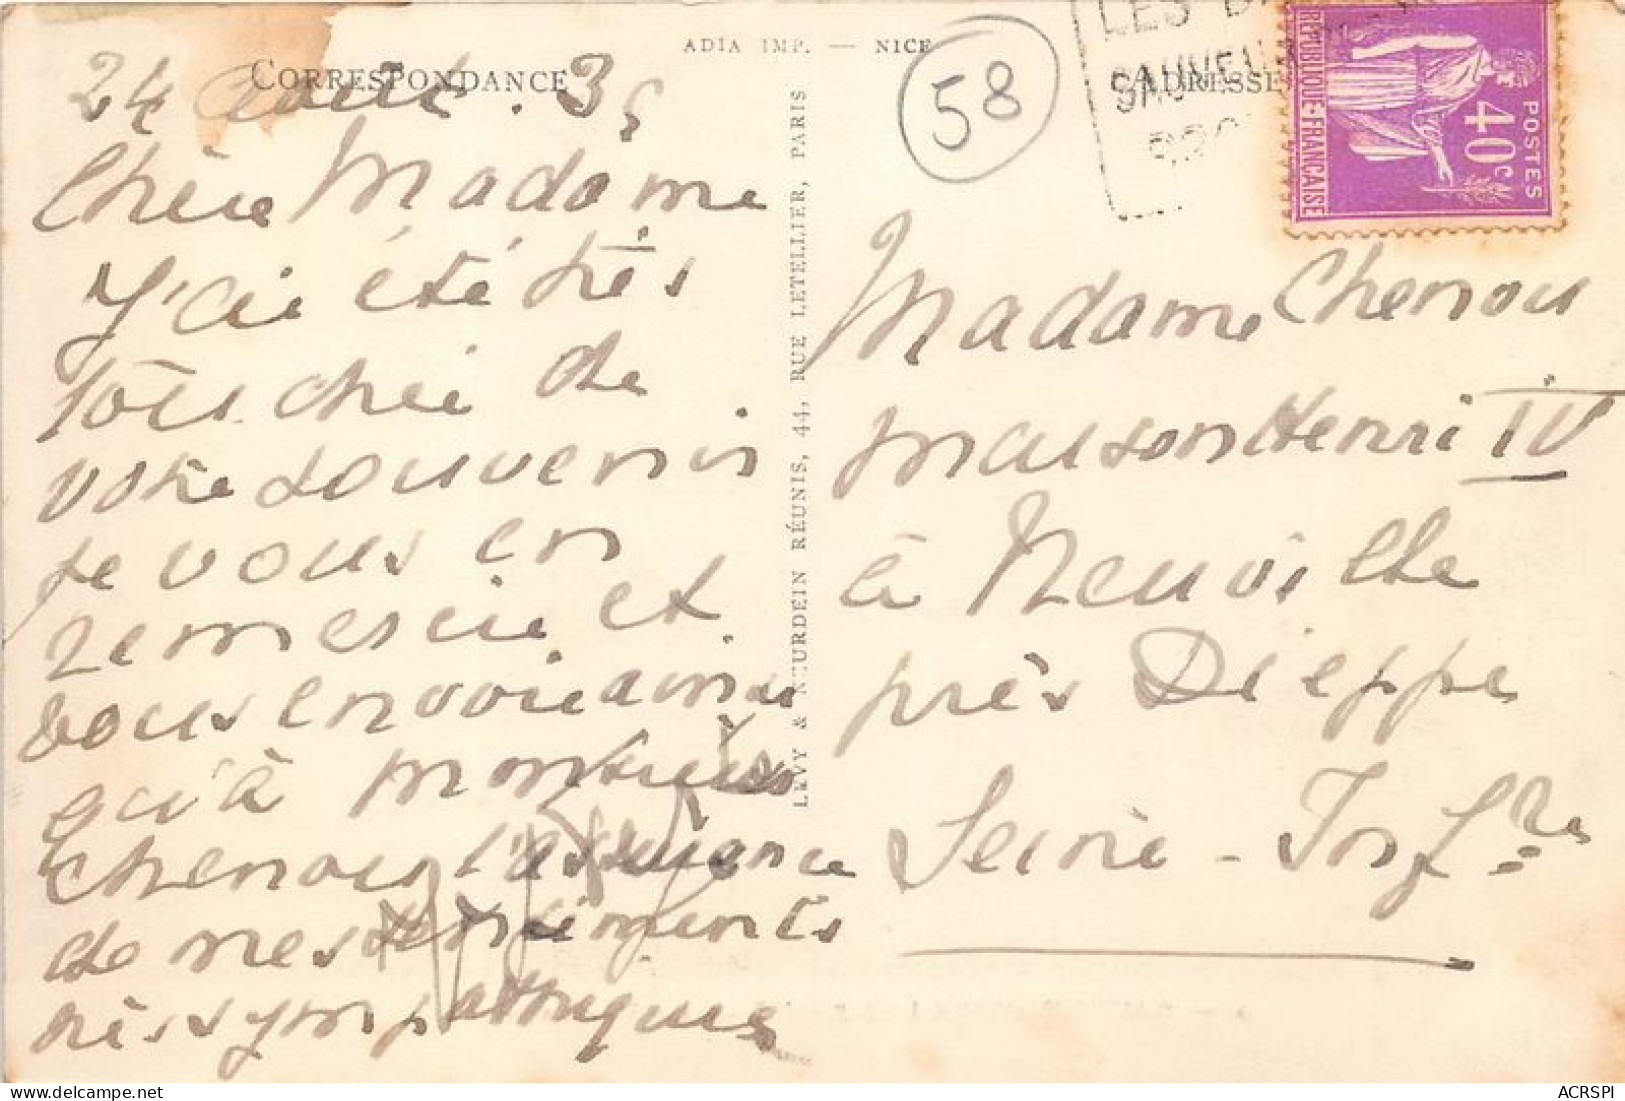 ADIA IMP. — NICE
CORRESPONDANCE
ADRESSE
58
LES
SAUVE
RÉPUBLIQUE FRANÇAISE
POSTES
40c
24 août . 35
Chère Madame
J'ai été très
touchée de
votre souvenir
je vous en
remercie et
vous envoie ainsi
qu'à Monsieur
Chenou l'assurance
de mes sentiments
très sympathiques
LEVY & NEURDEIN RÉUNIS, 44, RUE LETELLIER, PARIS
Madame Chenou
maison Henri IV
à Neuville
près Dieppe
Seine-Infre
ACRSPI